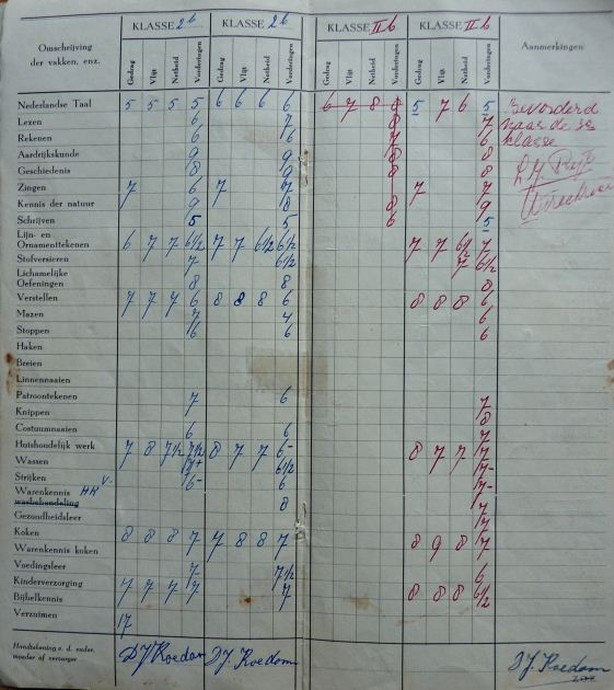 KLASSE 2b KLASSE 2b KLASSE IIb KLASSE IIb
Omschrijving der vakken, enz. Gedrag Vlijt Netheid Vorderingen Gedrag Vlijt Netheid Vorderingen Gedrag Vlijt Netheid Vorderingen Gedrag Vlijt Netheid Vorderingen Aanmerkingen
Nederlandse Taal 5 5 5 5 6 6 6 6 6 7 8 8 5 7 6 5 Bevorderd
Lezen 6 7 8 7 naar de 3e
Rekenen 6 6 7 6 klasse
Aardrijkskunde 9 9 8 8
Geschiedenis 8 9 8 8
Zingen 7 6 7 7 7 7
Kennis der natuur 9 8 8 9
Schrijven 5 5 6 5
Lijn- en Ornamenttekenen 6 7 7 6½ 7 7 6½ 6½ 7 7 6½ 7
Stofversieren 7 6½ 7 6½
Lichamelijke Oefeningen 8 8 8
Verstellen 7 7 7 6 8 8 8 6 8 8 8 6
Mazen 7 4 6
Stoppen 6 6 6
Haken
Breien
Linnennaaien
Patroontekenen 7 6 7
Knippen 8
Costuumnaaien 6 6 7
Huishoudelijk werk 7 8 7½ 7½ 8 7 7 6- 8 7 7 7
Wassen 7+ 6½ 7-
Strijken 6- 6 7-
Warenkennis HK V.
wasbehandeling 8 7
Gezondheidsleer 7
Koken 8 8 8 7 7 8 8 7 8 9 8 7
Warenkennis koken
Voedingsleer 7 7½ 6
Kinderverzorging 7 7 7 7 7 8 8 8 6½
Bijbelkennis
Verzuimen 17
Handtekening v. d. ouder, moeder of verzorger DJ Roedom D.J. Roedom D.J. Roedom